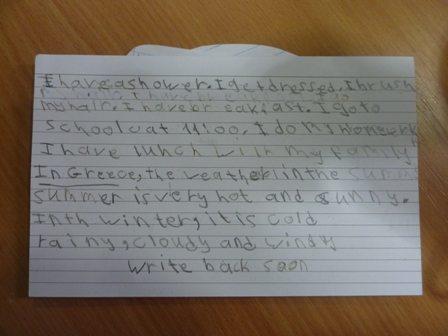 I have a shower. I get dressed. I brush
my hair. I have breakfast. I go to
school at 11:00. I do homework
I have lunch with my family
In Greece, the weather in the summ
summer is very hot and sunny.
In th winter, it is cold
rainy, cloudy and windy
Write back soon